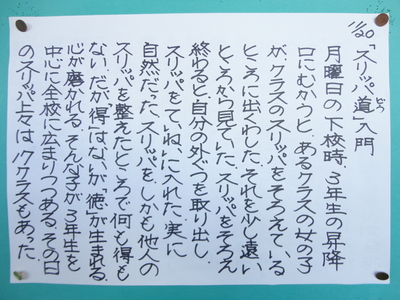 11/20
「スリッパ道」入門
どう
月曜日の下校時、3年生の昇降
口にむかうと、あるクラスの女の子
が、クラスのスリッパをそろえている
ところに出くわした。それを少し遠い
ところから見ていた。スリッパをそろえ
終わると、自分の外ぐつを取り出し、
スリッパをていねいに入れた。実に
自然だった。スリッパを、しかも他人の
スリッパを整えたところで何も得も
ない。だが、「得」はないが「徳」が生まれる。
心が磨かれる。そんな子が3年生を
中心に全校に広まりつつある。その日
のスリッパ上々は17クラスもあった。